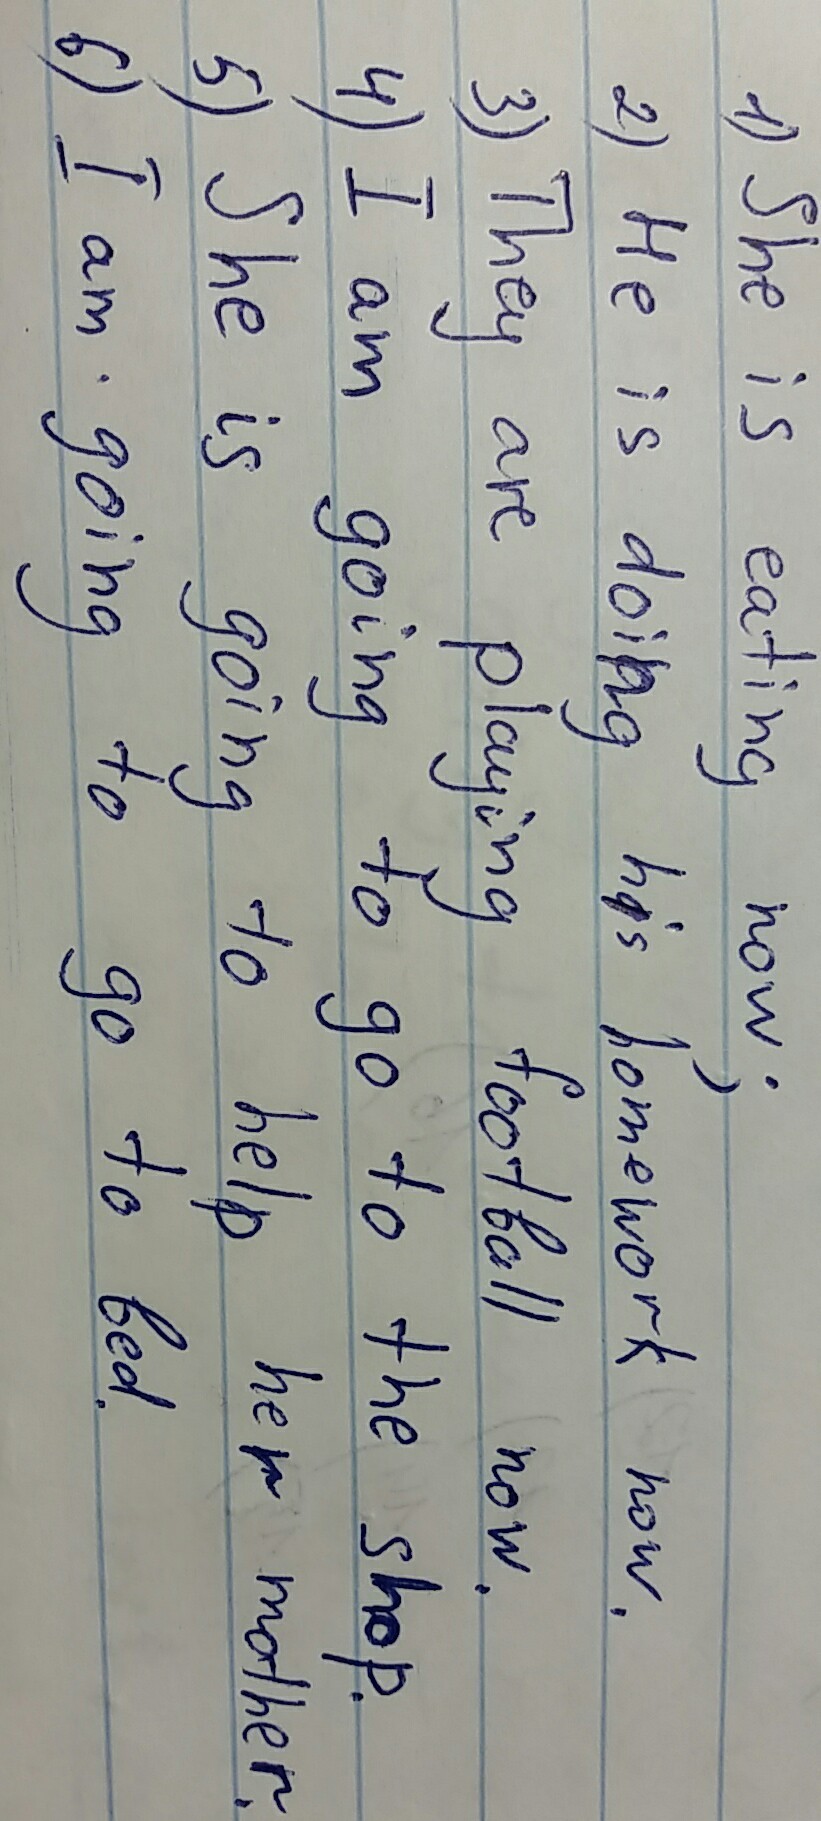 1) She is eating now;
2) He is doing his homework now.
3) They are playing football now.
4) I am going to go to the shop.
5) She is going to help her mother.
6) I am going to go to bed.